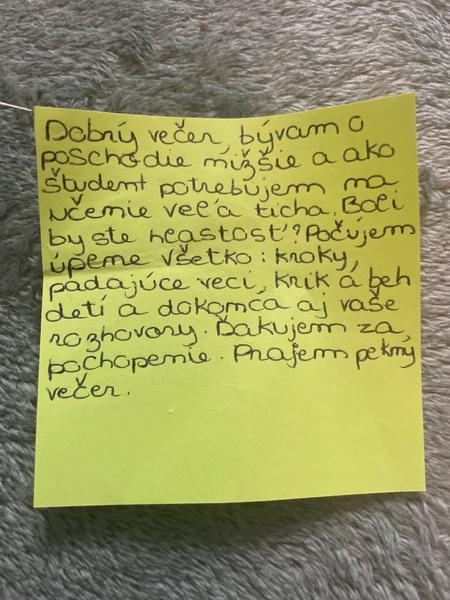 Dobrý večer, bývam o
poschodie nižšie a ako
študent potrebujem na
učenie veľa ticha. Boli
by ste ? Počujem
úplne všetko: kroky,
padajúce veci, krik a beh
detí a dokonca aj vaše
rozhovory. Ďakujem za
pochopenie. Prajem pekný
večer.